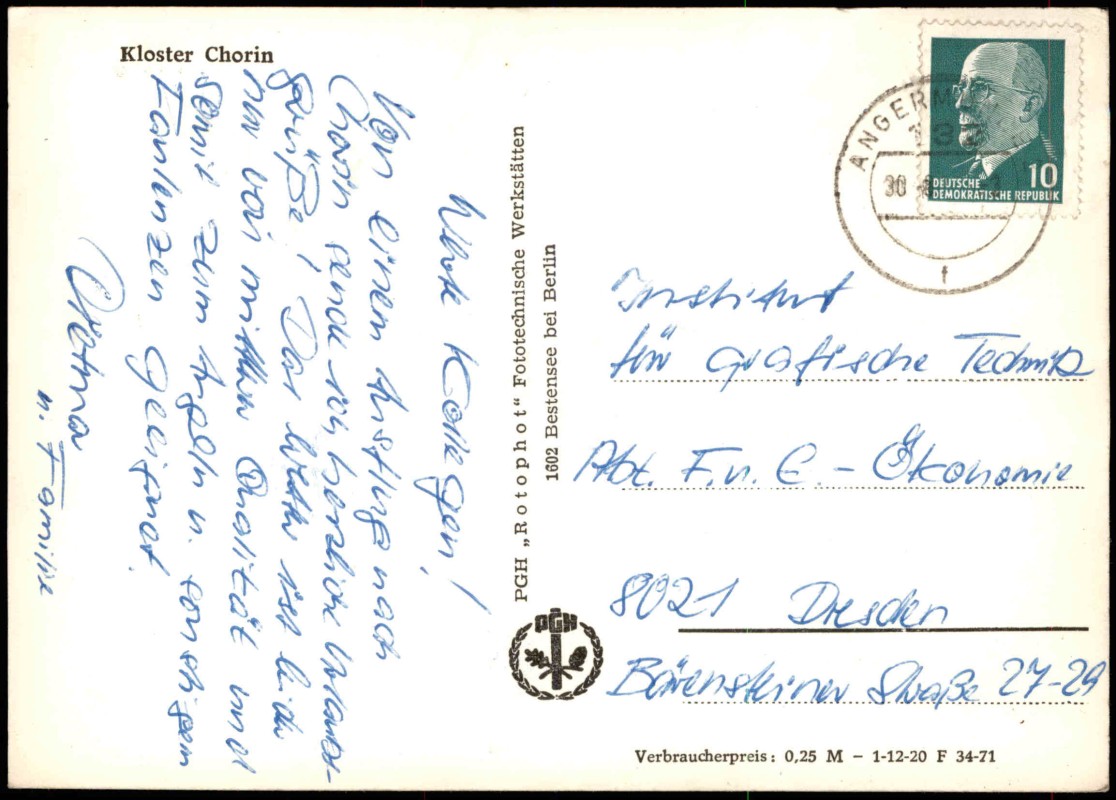 Kloster Chorin
Werte Kollegen!
Von einem Ausflug nach
Chorin sende ich herzliche Urlaubs-
grüße! Das Wetter ist leider
nur von mittlerer Qualität und
somit zum Angeln u. sonstigem
Faulenzen geeignet.
u. Familie
PGH „Rotophot“ Fototechnische Werkstätten
1602 Bestensee bei Berlin
PGH
ANGERM
132
30
f
10
DEUTSCHE
DEMOKRATISCHE REPUBLIK
Institut
für grafische Technik
Abt. F.u.E.-Ökonomie
8021 Dresden
Bärensteiner Straße 27-29
Verbraucherpreis: 0,25 M – 1-12-20 F 34-71